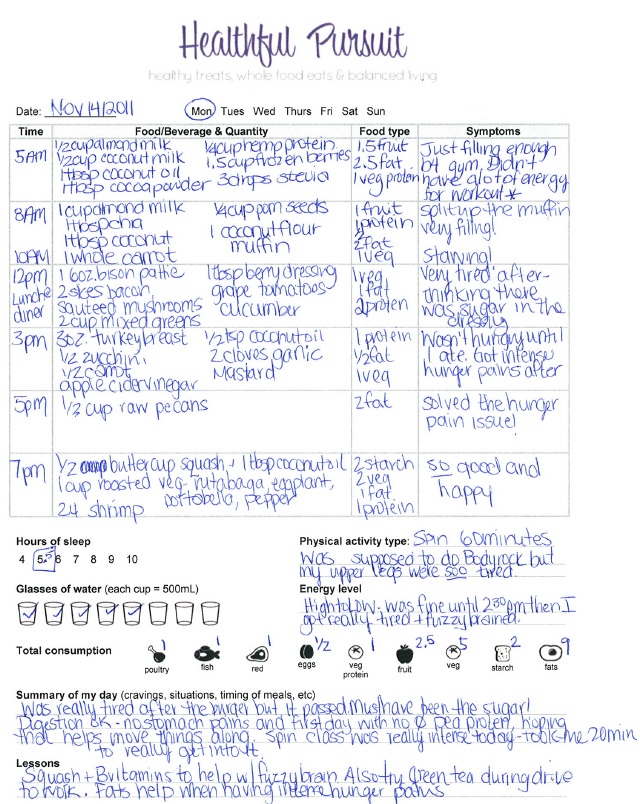 Healthful Pursuit
healthy treats, whole food eats & balanced living
Date: Nov 14/2011 Mon Tues Wed Thurs Fri Sat Sun
Time Food/Beverage & Quantity Food type Symptoms
5AM
1/2 cup almond milk 1/4 cup hemp protein
1/2 cup coconut milk 1.5 cup frozen berries
1 tbsp coconut oil 3 drops stevia
1 tbsp cocoa powder
1.5 fruit
2.5 fat
1 veg protein
Just filling enough
b4 gym. Didn't
have a lot of energy
for workout *
8AM
1 cup almond milk 1/4 cup pom seeds
1 tbsp chia 1 coconut flour
1 tbsp coconut muffin
10AM 1 whole carrot
1 fruit
1 protein
1/2
2 fat
1 veg
split up the muffin
very filling!
Starving!
12pm
Lunch@
diner
1 6oz. bison pattie 1 tbsp berry dressing
2 slices bacon grape tomatoes
sauteed mushrooms cucumber
2 cup mixed greens
1 veg
1 fat
2 protein
Very tired after -
thinking there
was sugar in the
dressing
3pm
3oz. turkey breast 1/2 tsp coconut oil
1/2 zucchini 2 cloves garlic
1/2 carrot mustard
apple cider vinegar
1 protein
1/2 fat
1 veg
Wasn't hungry until
I ate. Got intense
hunger pains after
5pm
1/3 cup raw pecans
2 fat
solved the hunger
pain issue!
7pm
1/2 buttercup squash + 1 tbsp coconut oil
1 cup roasted veg - rutabaga, eggplant,
portobella, pepper
24 shrimp
2 starch
2 veg
1 fat
1 protein
so good and
happy
Hours of sleep
4 5.5 6 7 8 9 10
Physical activity type: Spin 60 minutes
Was supposed to do Bodyrock but
my upper legs were soo tired
Glasses of water (each cup = 500mL)
Energy level
High to Low - was fine until 2:30pm then I
got really tired + fuzzy brained.
Total consumption
1 1 1 1/2 1 2.5 5 2 9
poultry fish red eggs veg protein fruit veg starch fats
Summary of my day (cravings, situations, timing of meals, etc)
Was really tired after the burger but it passed. Must have been the sugar!
Digestion OK - no stomach pains and first day with no pea protein, hoping
that helps move things along. Spin class was really intense today - took me 20min
to really get into it.
Lessons
Squash + B vitamins to help w/ fuzzy brain. Also try Green tea during drive
to work. Fats help when having intense hunger pains